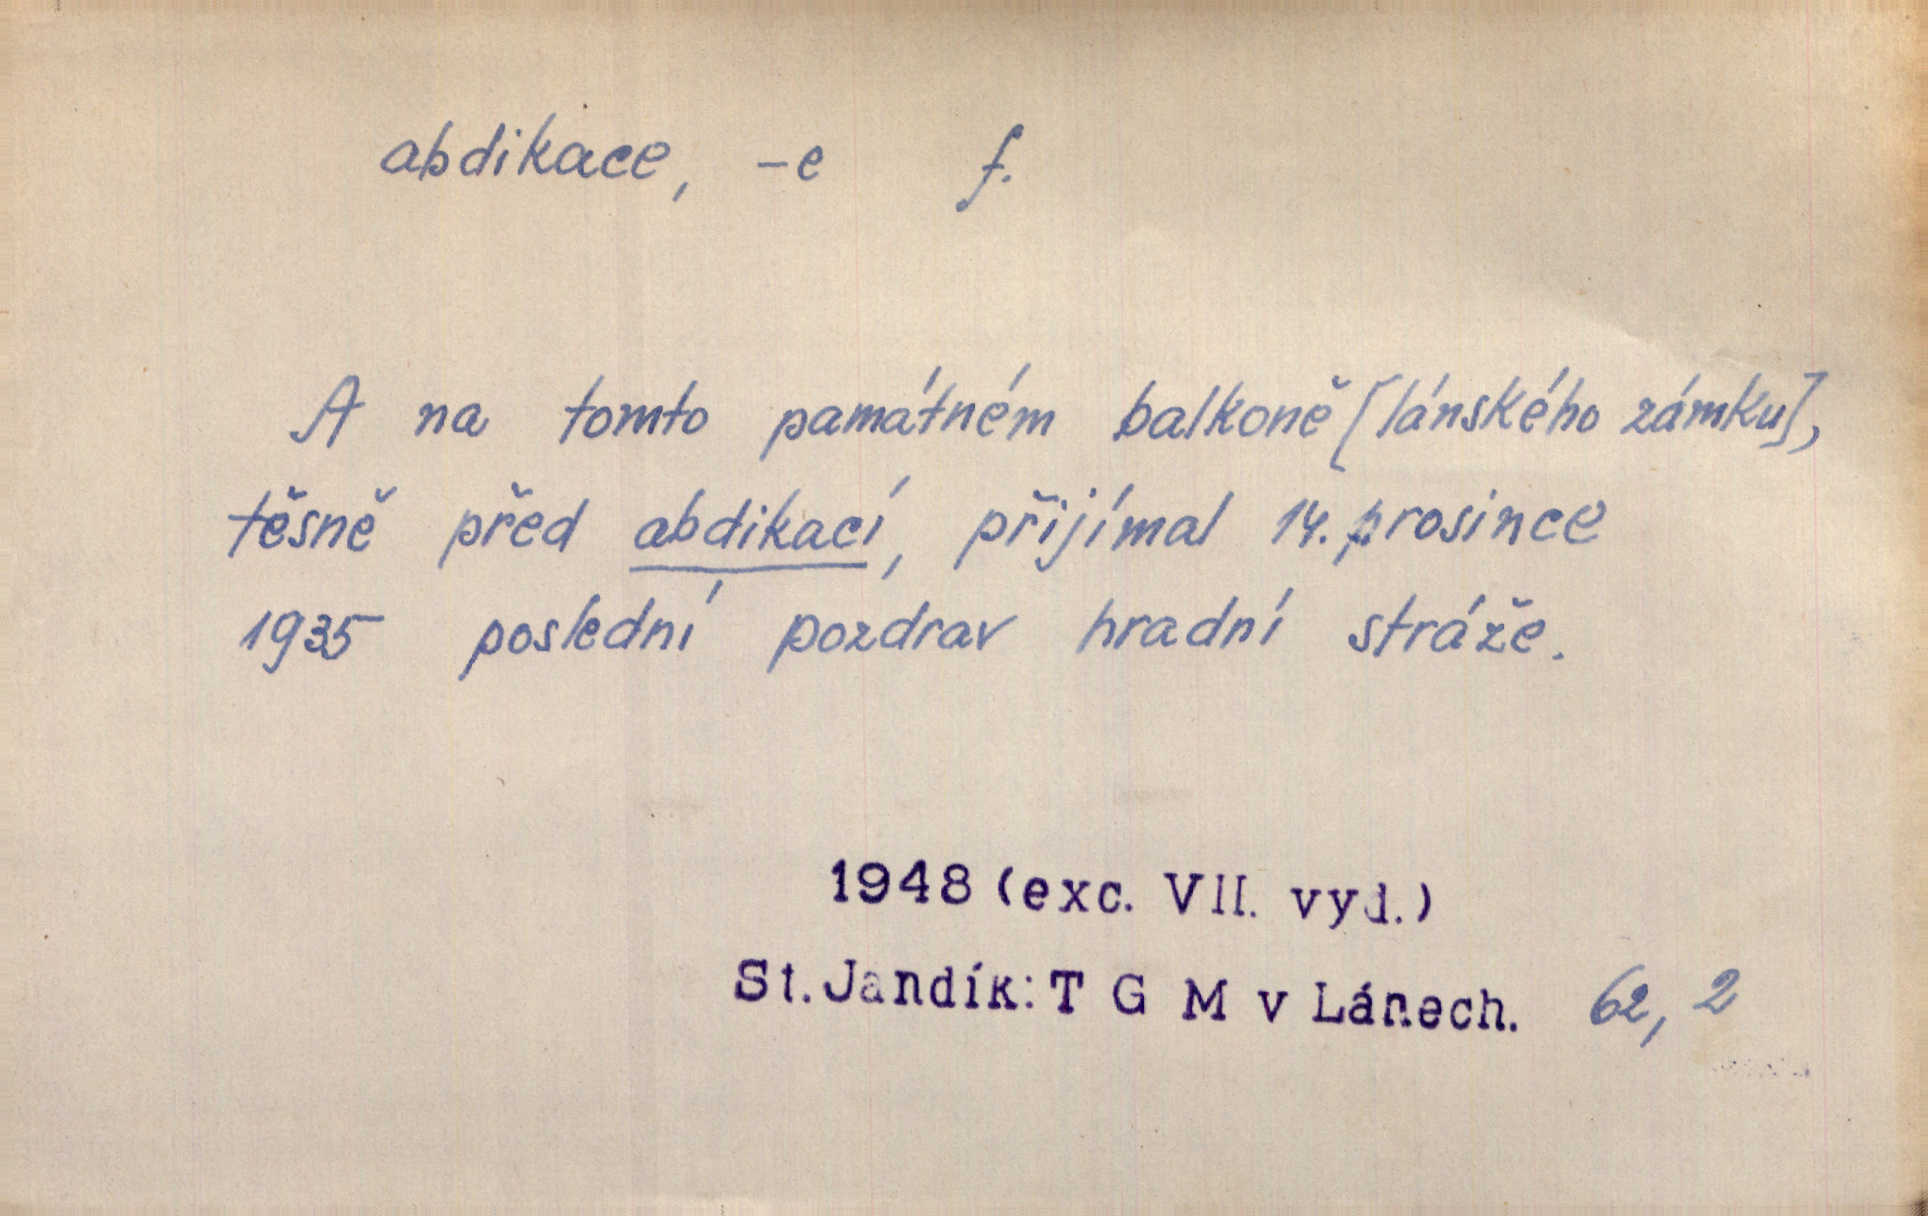 abdikace, -e f.
A na tomto památném balkoně [lánského zámku],
těsně před abdikací, přijímal 14. prosince
1935 poslední pozdrav hradní stráže.
1948 (exc. VII. vyd.)
St. Jandík: T G M v Lánech. 62, 2